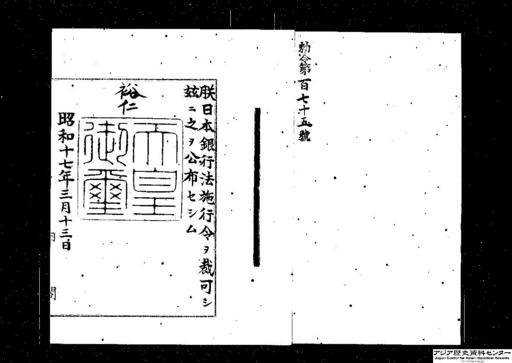 勅令第百七十五號
朕日本銀行法施行令ヲ裁可シ
玆ニ之ヲ公布セシム
裕仁
天皇
御璽
昭和十七年三月十三日
内
閣
アジア歴史資料センター
Japan Center for Asian Historical Records